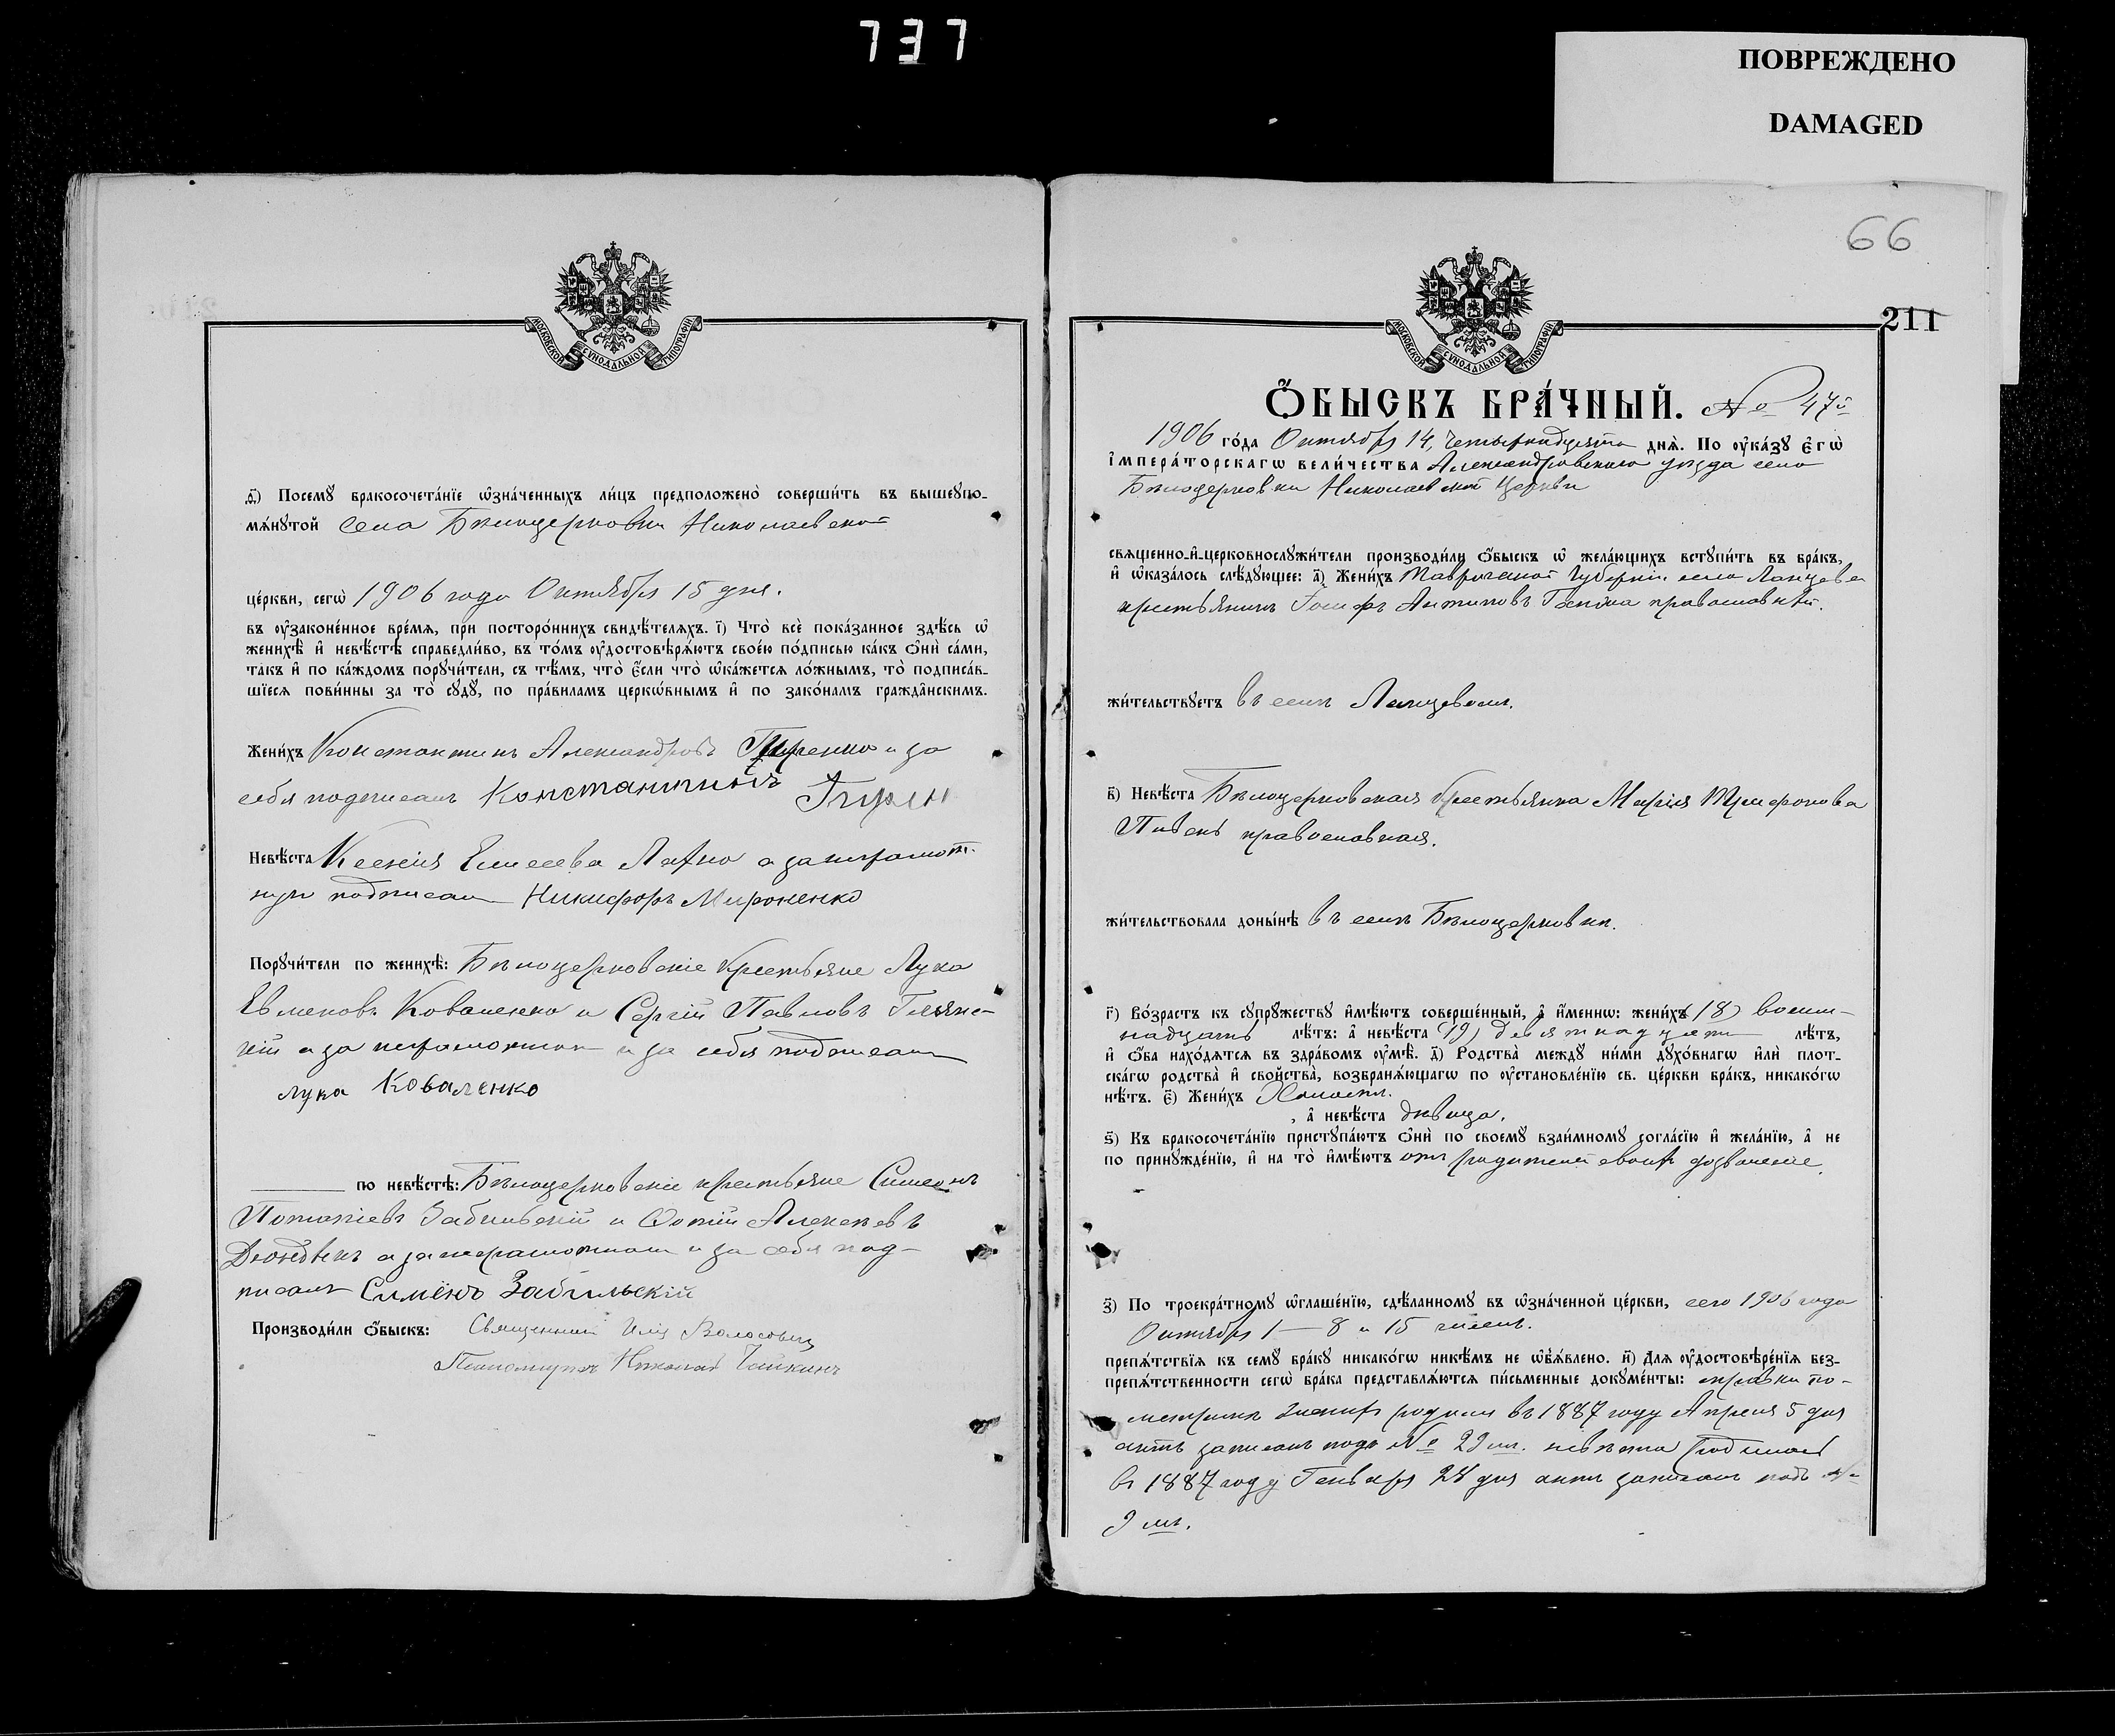 737
ПОВРЕЖДЕНО
DAMAGED
МОСКОВСКОЙ СѴНОДАЛЬНОЙ ТИПОГРАФІИ
ѳ҃) Посемꙋ̀ бракосочета́нїе ѡ҆зна́ченныхъ ли́цъ предположено̀ соверши́ть въ вышеꙋпо-
мѧ́нꙋтой села Бѣлоцерковки Николаевской
це́ркви, сегѡ̀ 1906 года Октября 15 дня.
въ ᲂу҆законе́нное вре́мѧ, при посторо́ннихъ свидѣ́телѧхъ. і҃) Что̀ всѐ пока́занное здѣ́сь ѡ҆
женихѣ̀ и҆ невѣ́стѣ справедли́во, въ то́мъ ᲂу҆достовѣрѧ́ютъ свое́ю по́дписью ка́къ ѻ҆нѝ са́ми,
та́къ и҆ по ка́ждомъ порꙋчи́тели, съ тѣ́мъ, что̀ є҆́сли что̀ ѡ҆ка́жетсѧ ло́жнымъ, то̀ подписа́в-
шїесѧ пови́нны за то̀ сꙋдꙋ̀, по пра́виламъ церко́внымъ и҆ по зако́намъ гражда́нскимъ.
Жени́хъ Константинъ Александровъ и за
себя подписалъ Константинъ
Невѣ́ста Ксенія Елисеева Лахно а за неграмот-
ную подписалъ Никифоръ Мироненко
Порꙋчи́тели по женихѣ̀: Бѣлоцерковскіе крестьяне Лука
Евменовъ Коваленко и Сергій Павловъ
а за неграмотнаго и за себя подписалъ
Лука Коваленко
по невѣ́стѣ: Бѣлоцерковскіе крестьяне Симеонъ
Потапіевъ Забильскій и Фотій Алексѣевъ
а за неграмотнаго и за себя под-
писалъ Симёнъ Забильскій
Производи́ли ѻ҆́быскъ: Священникъ Илія Волосовичъ
Псаломщикъ Николай
66
211
МОСКОВСКОЙ СѴНОДАЛЬНОЙ ТИПОГРАФІИ
Ѻ҆́БЫСКЪ БРА́ЧНЫЙ. № 47й
1906 го́да Октября 14, четырнадцатаго днѧ̀. По ᲂу҆ка́зꙋ Є҆гѡ̀
І҆мпера́торскагѡ вели́чества Александровскаго уѣзда села
Бѣлоцерковки Николаевской Церкви
свѧщенно-и҆-церковнослꙋжи́тели производи́ли ѻ҆́быскъ ѡ҆ жела́ющихъ встꙋпи́ть въ бра́къ,
и҆ ѡ҆каза́лось слѣ́дꙋющее: а҃) Жени́хъ Таврической Губерніи села Ланцева
крестьянинъ Іосифъ Антиповъ православный.
жи́тельствꙋетъ въ селѣ Ланцевомъ.
в҃) Невѣ́ста Бѣлоцерковская крестьянка Марія Трифонова
Пивень православная.
жи́тельствовала доны́нѣ въ селѣ Бѣлоцерковкѣ.
г҃) Во́зрастъ къ сꙋпрꙋ́жествꙋ и҆мѣ́ютъ соверше́нный, а҆ и҆́меннѡ: жени́хъ (18) восем-
надцать лѣ́тъ: а҆ невѣ́ста (19) девятнадцать лѣ́тъ,
и҆ ѻ҆́ба нахо́дѧтсѧ въ здра́вомъ ᲂу҆мѣ̀. д҃) Родства̀ междꙋ ни́ми дꙋхо́внагѡ и҆лѝ плот-
ска́гѡ родства̀ и҆ сво́йства̀, возбранѧ́ющагѡ по ᲂу҆становле́нїю св. це́ркви бра́къ, никако́гѡ
нѣ́тъ. є҃) Жени́хъ Холостъ.
, а҆ невѣ́ста дѣвица.
ѕ҃) Къ бракосочета́нїю пристꙋпа́ютъ ѻ҆нѝ по своемꙋ̀ взаи́мномꙋ согла́сїю и҆ жела́нїю, а҆ не
по принꙋжде́нїю, и҆ на то̀ и҆мѣ́ютъ отъ родителей своихъ дозволеніе.
з҃) По троекра́тномꙋ ѡ҆глаше́нїю, сдѣ́ланномꙋ въ ѡ҆зна́ченной це́ркви, сего 1906 года
Октября 1 — 8 и 15 чиселъ.
препѧ́тствїѧ къ семꙋ̀ бра́кꙋ никако́гѡ никѣ́мъ не ѡ҆б̾ѧ́влено. и҃) Длѧ ᲂу҆достовѣре́нїѧ без-
препѧ́тственности сегѡ̀ бра́ка представлѧ́ютсѧ пи́сьменные докꙋме́нты: справки по-
метрикѣ женихъ родился въ 1887 году Апреля 5 дня
актъ записанъ подъ № 29 м. невѣста родилась
въ 1887 году Генваря 24 дня актъ записанъ подъ №
9 м.